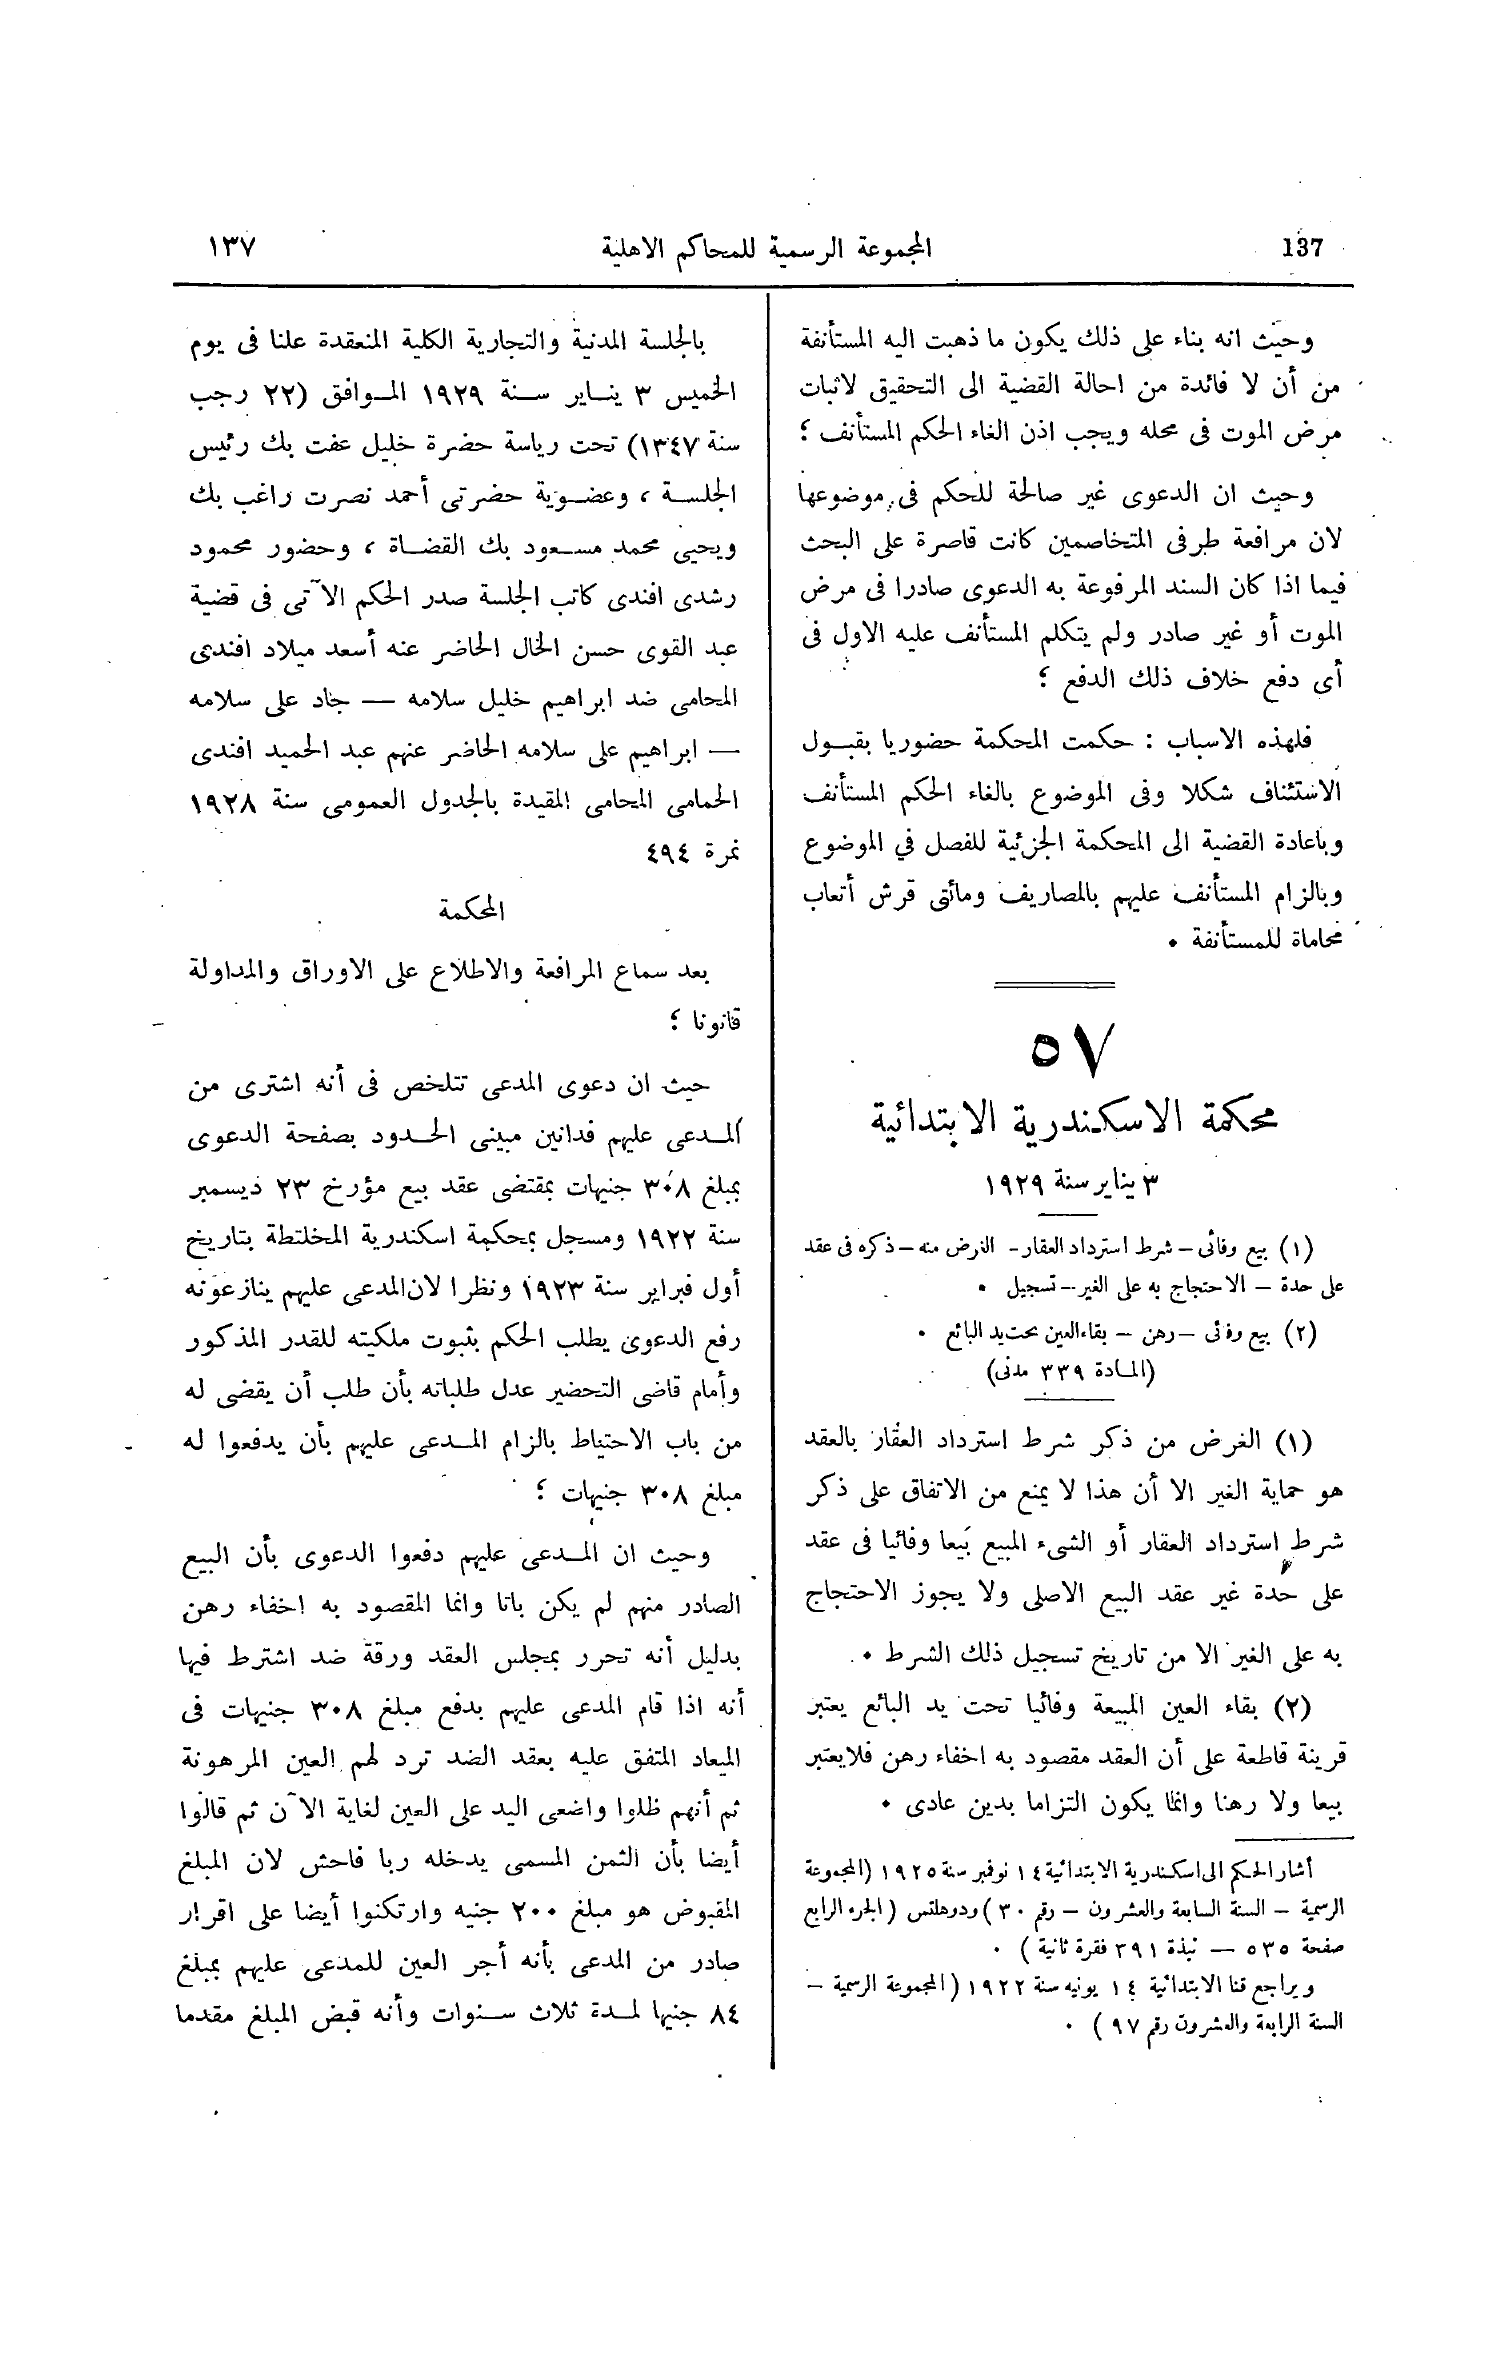 137
المجموعة الرسمية للمحاكم الاهلية
١٣٧
وحيث انه بناء على ذلك يكون ما ذهبت اليه المستأنفة
من أن لا فائدة من احالة القضية الى التحقيق لاثبات
مرض الموت فى محله ويجب اذن الغاء الحكم المستأنف ؛
وحيث ان الدعوى غير صالحة للحكم فى موضوعها
لان مرافعة طرفى المتخاصمين كانت قاصرة على البحث
فيما اذا كان السند المرفوعة به الدعوى صادرا فى مرض
الموت أو غير صادر ولم يتكلم المستأنف عليه الاول فى
أى دفع خلاف ذلك الدفع ؛
فلهذه الاسباب : حكمت المحكمة حضوريا بقبول
الاستئناف شكلا وفى الموضوع بالغاء الحكم المستأنف
وباعادة القضية الى المحكمة الجزئية للفصل في الموضوع
وبالزام المستأنف عليهم بالمصاريف ومائتى قرش أتعاب
محاماة للمستأنفة •
٥٧
محكمة الاسكندرية الابتدائية
٣ يناير سنة ١٩٢٩
(١) بيع وفائى – شرط استرداد العقار – الغرض منه – ذكره فى عقد
على حدة – الاحتجاج به على الغير – تسجيل •
(٢) بيع وفائى – رهن – بقاء العين تحت يد البائع •
(المادة ٣٣٩ مدنى)
(١) الغرض من ذكر شرط استرداد العقار بالعقد
هو حماية الغير الا أن هذا لا يمنع من الاتفاق على ذكر
شرط استرداد العقار أو الشىء المبيع بيعا وفائيا فى عقد
على حدة غير عقد البيع الاصلى ولا يجوز الاحتجاج
به على الغير الا من تاريخ تسجيل ذلك الشرط •
(٢) بقاء العين المبيعة وفائيا تحت يد البائع يعتبر
قرينة قاطعة على أن العقد مقصود به اخفاء رهن فلا يعتبر
بيعا ولا رهنا وانما يكون التزاما بدين عادى •
أشار الحكم الى اسكندرية الابتدائية ١٤ نوفمبر سنة ١٩٢٥ (المجموعة
الرسمية – السنة السابعة والعشرون – رقم ٣٠) ودوهلتس (الجزء الرابع
صفحة ٥٣٥ – نبذة ٣٩١ فقرة ثانية) •
ويراجع قنا الابتدائية ١٤ يونيه سنة ١٩٢٢ (المجموعة الرسمية –
السنة الرابعة والعشرون رقم ٩٧) •
بالجلسة المدنية والتجارية الكلية المنعقدة علنا فى يوم
الخميس ٣ يناير سنة ١٩٢٩ الموافق (٢٢ رجب
سنة ١٣٤٧) تحت رياسة حضرة خليل عفت بك رئيس
الجلسة ، وعضوية حضرتى أحمد نصرت راغب بك
ويحيى محمد مسعود بك القضاة ، وحضور محمود
رشدى افندى كاتب الجلسة صدر الحكم الآتى فى قضية
عبد القوى حسن الخال الحاضر عنه أسعد ميلاد افندى
المحامى ضد ابراهيم خليل سلامه — جاد على سلامه
— ابراهيم على سلامه الحاضر عنهم عبد الحميد افندى
الحمامى المحامى المقيدة بالجدول العمومى سنة ١٩٢٨
نمرة ٤٩٤
المحكمة
بعد سماع المرافعة والاطلاع على الاوراق والمداولة
قانونا ؛
حيث ان دعوى المدعى تتلخص فى أنه اشترى من
المدعى عليهم فدانين مبينى الحدود بصفحة الدعوى
بمبلغ ٣٠٨ جنيهات بمقتضى عقد بيع مؤرخ ٢٣ ديسمبر
سنة ١٩٢٢ ومسجل بمحكمة اسكندرية المختلطة بتاريخ
أول فبراير سنة ١٩٢٣ ونظرا لان المدعى عليهم ينازعونه
رفع الدعوى يطلب الحكم بثبوت ملكيته للقدر المذكور
وأمام قاضى التحضير عدل طلباته بأن طلب أن يقضى له
من باب الاحتياط بالزام المدعى عليهم بأن يدفعوا له
مبلغ ٣٠٨ جنيهات ؛
وحيث ان المدعى عليهم دفعوا الدعوى بأن البيع
الصادر منهم لم يكن باتا وانما المقصود به اخفاء رهن
بدليل أنه تحرر بمجلس العقد ورقة ضد اشترط فيها
أنه اذا قام المدعى عليهم بدفع مبلغ ٣٠٨ جنيهات فى
الميعاد المتفق عليه بعقد الضد ترد لهم العين المرهونة
ثم أنهم ظلوا واضعى اليد على العين لغاية الآن ثم قالوا
أيضا بأن الثمن المسمى يدخله ربا فاحش لان المبلغ
المقبوض هو مبلغ ٢٠٠ جنيه وارتكنوا أيضا على اقرار
صادر من المدعى بأنه أجر العين للمدعى عليهم بمبلغ
٨٤ جنيها لمدة ثلاث سنوات وأنه قبض المبلغ مقدما